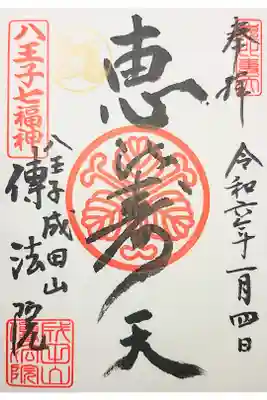 奉拝
令和六年一月四日
恵比寿天
八王子七福神
八王子成田山
傳法院